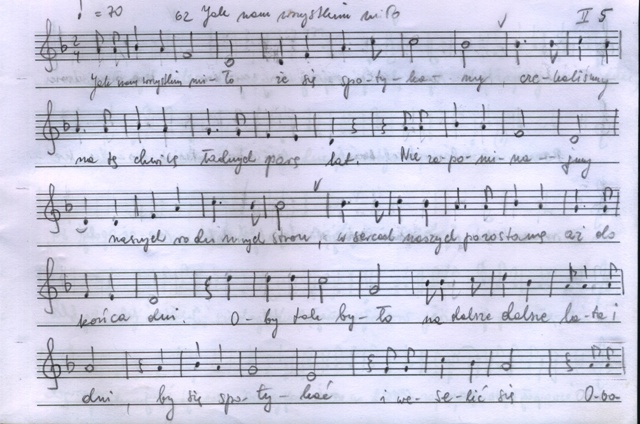 ♩ = 70 62 Jak nam wszystkim miło II 5
Jak nam wszystkim mi-ło, że się spo-ty-ka-my, cze-kaliśmy
na tę chwilę ładnych parę lat. Nie za-po-mi-na-jmy
naszych rodzinnych stron, w sercach naszych pozostaną aż do
końca dni. O-by tak by-ło na dalsze dalsze la-ta i
dni, by się spo-ty-kać i we-se-lić się O-ba